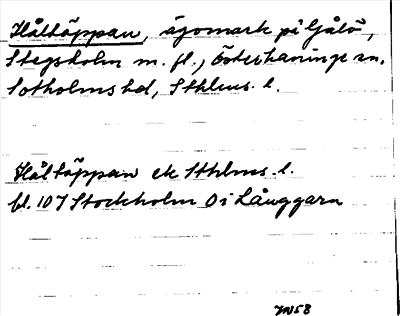 Håltäppan, ägomark på Gålö,
Stegsholm m. fl., Österhaninge sn,
Sotholms hd, Sthlms. l.
Håltäppan ek Sthlms. l.
bl. 107 Stockholm O i Långgarn
JN58